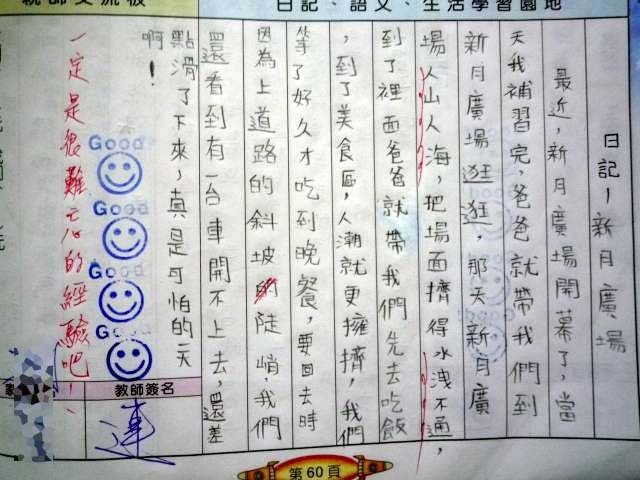 親師交流板
日記、語文、生活學習園地
日記－新月廣場
最近，新月廣場開幕了，當
天我補習完，爸爸就帶我們到
新月廣場逛逛，那天新月廣
場人山人海，把場面擠得水洩不通，
到了裡面爸爸就帶我們先去吃飯
，到了美食區，人潮就更擁擠，我們
等了好久才吃到晚餐，要回去時
因為上道路的斜坡的陡峭，我們
還看到有一台車開不上去，還差
點滑了下來，真是可怕的一天
啊！
一定是很難忘的經驗吧！
Good
Good
Good
Good
教師簽名
連
第60頁